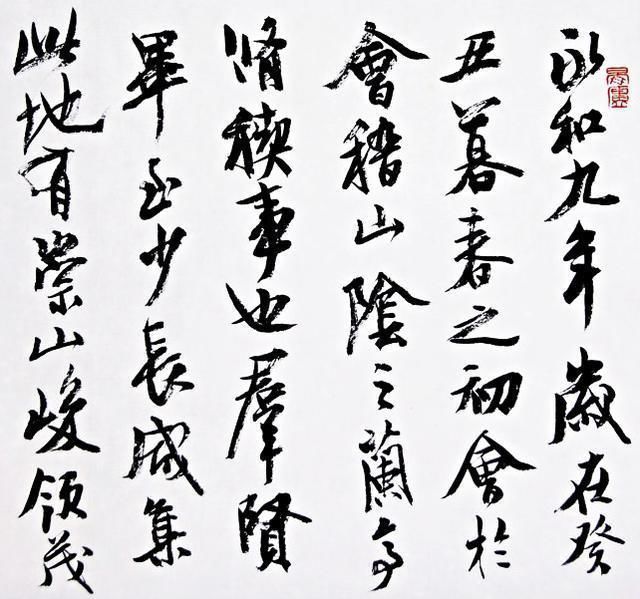 永和九年歲在癸
丑暮春之初會於
會稽山陰之蘭亭
脩稧事也羣賢
畢至少長咸集
此地有崇山峻領茂